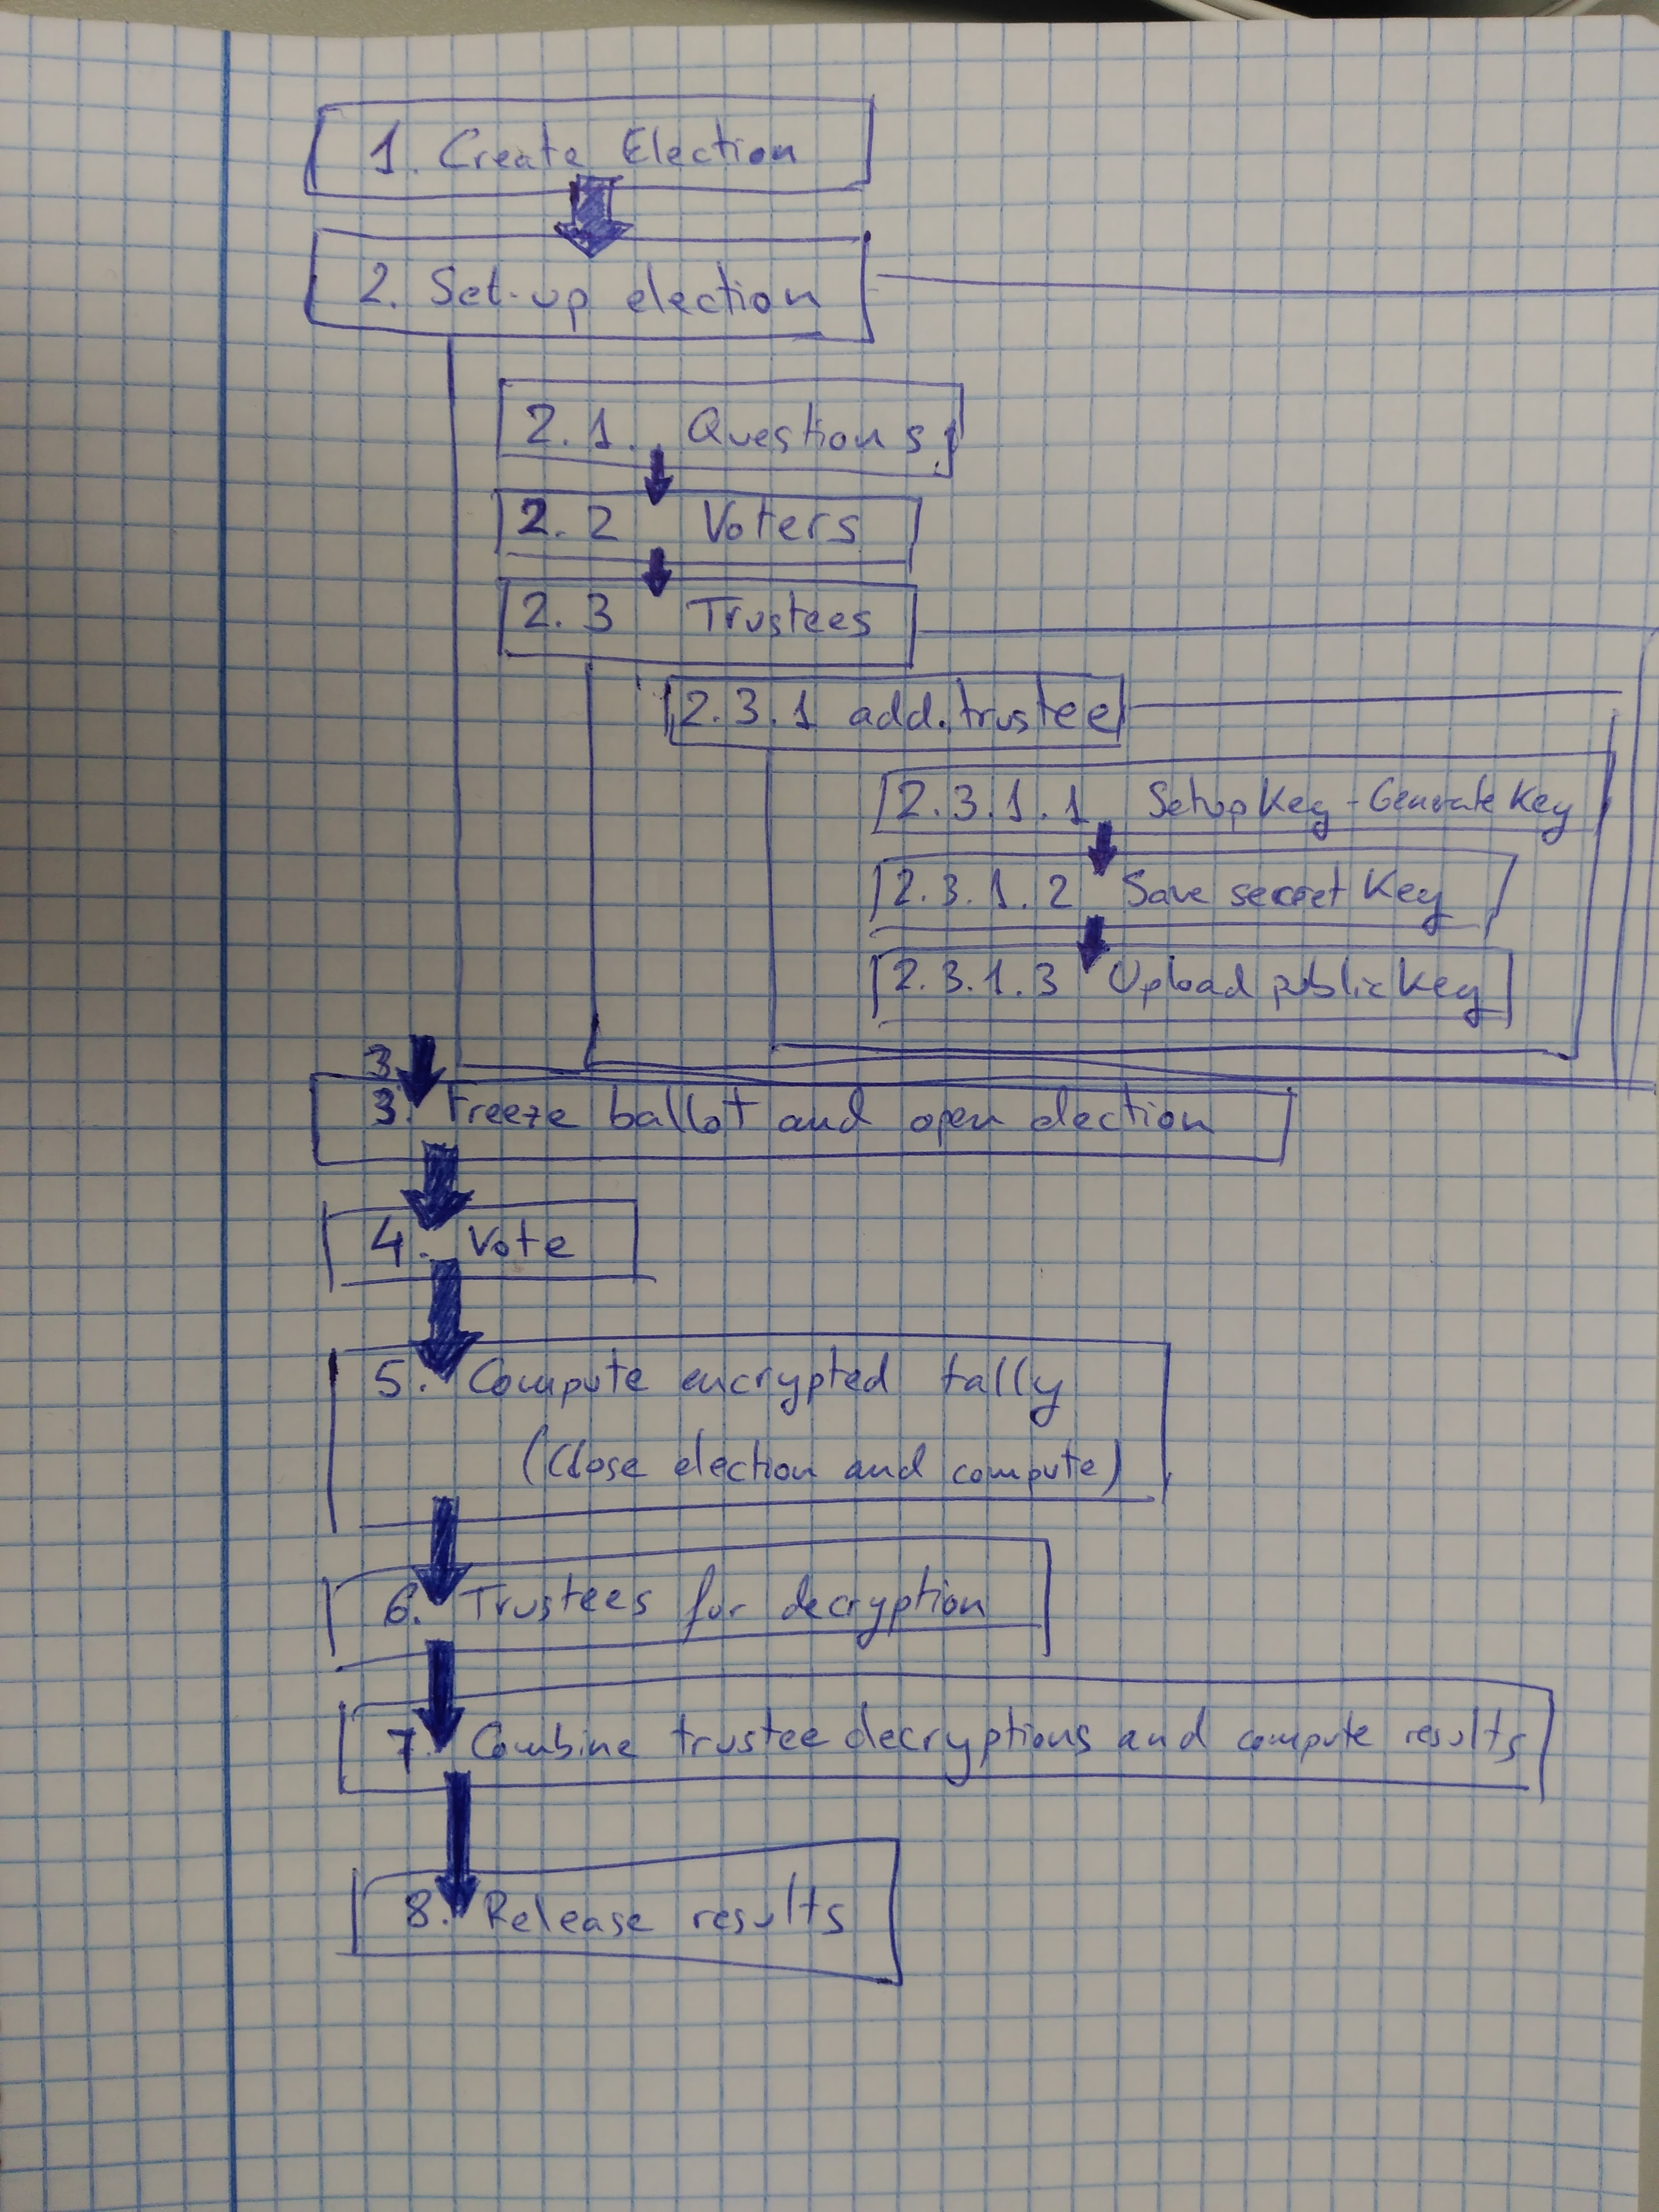 1. Create Election
2. Set-up election
2.1. Questions
2.2 Voters
2.3 Trustees
2.3.1 add.trustee
2.3.1.1 Setup Key - Generate Key
2.3.1.2 Save secret Key
2.3.1.3 Upload public Key
3.
3. Freeze ballot and open election
4. Vote
5. Compute encrypted tally
(Close election and compute)
6. Trustees for decryption
7. Combine trustee decryptions and compute results
8. Release results